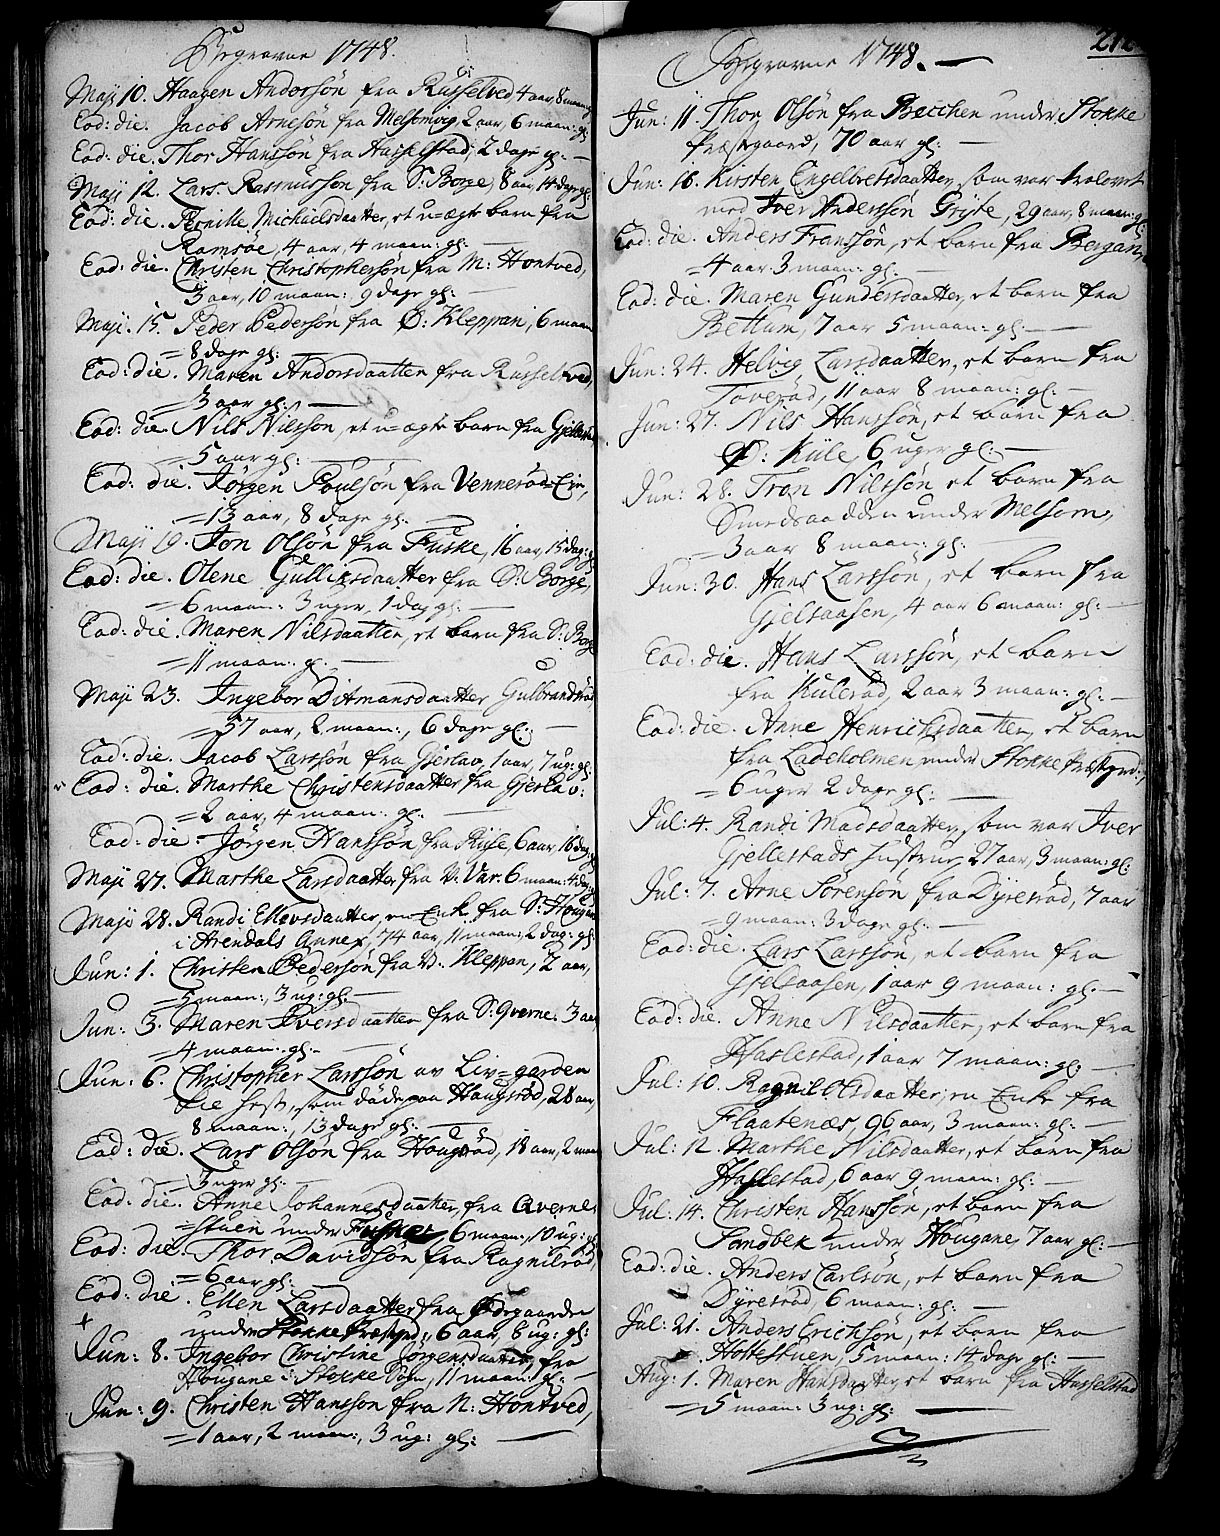 Begravne 1748.
Maji 10. Haagen Andorsön fra Russelved 4 aar, 8 maan: gl:
Eod: die. Jacob Arnesön fra Melsomvig 2 aar, 6 maan: gl:
Eod: die. Thor Hanssön fra Hasselstad, 2 dage gl: —
Maji 12. Lars Rasmussön fra S: Borge, 8 aar, 14 dage gl:
Eod: die. Pernille Michielsdaatter, et u=ægte barn fra
Ramsöe, 4 aar, 4 maan: gl: —
Eod: die. Christen Christophersön fra N: Hontved,
3 aar, 10 maan: 9 dage gl: —
Maji. 15. Peder Pedersön fra Ö: Kleppan, 6 maan
= 8 dage gl:
Eod: die. Maren Andorsdaatter fra Russelved,
= 3 aar gl: —
Eod: die. Nils Nilssön, et u=ægte barn fra
= 5 aar gl: —
Eod: die. Jörgen Poulsön fra Venneröd=Eie,
= 13 aar, 8 dage gl: —
Maji 19. Jon Olsön fra Fuske, 16 aar, 15 dag: gl:
Eod: die. Olene Gulliksdaatter fra S: Borge,
= 6 maan: 3 uger, 1 dag gl: —
Eod: die. Maren Nilsdaatter, et barn fra S: Borge
= 11 maan: gl: —
Maji 23. Ingebor Ditmansdaatter Gulbrandsröd
= 37 aar, 2 maan:, 6 dage gl: —
Eod: die. Jacob Larssön fra Gjerlav, 1 aar, 7 ug: gl:
Eod: die. Marthe Christensdaatter fra Gjerlav.
= 2 aar, 4 maan: gl: —
Eod: die. Jörgen Hanssön fra Riise, 6 aar, 16 dag: gl:
Maji 27. Marthe Larsdaatter fra V. Var. 6 maan: 4 dag:
Maji 28. Randi Ellevsdaatter, en Enke fra S: Hougan
i Arendals Annex, 74 aar, 11 maan: 2 dag: gl:
Jun: 1. Christen Pedersön fra V. Kleppan, 2 aar,
= 5 maan:, 3 ug: gl: —
Jun: 3. Maren Iversdaatter fra S: Qverne. 3 aar
= 4 maan: gl: —
Jun: 6. Christopher Larssön av Liv=garden
til hest, som döde paa Haugröd, 28 aar,
8 maan:, 13 dage gl: —
Eod: die. Lars Olsön fra Hougröd, 18 aar, 2 maan
= 3 uger gl: —
Eod: die. Anne Johannesdaatter, fra Qverne
= stuen under 6 maan:, 10 ug: gl:
Eod: die. Thor Davidsön fra Ragnilröd,
= 6 aar gl: —
Eod: die. Ellen Larsdaatter fra Ödegaarden
under Stokke Præstgrd:, 6 aar, 6 ug: gl:
+
Jun: 8. Ingebor Christine Jörgensdaatter, fra
Hougane i Stokke Sogn, 11 maan: gl: —
Jun: 9. Christen Hanssön fra N: Hontved,
= 1 aar, 2 maan:, 3 ug: gl: —
212
Begravne 1748. —
Jun: 11. Thor Olsön fra Becchen under Stokke
Præstgaard, 70 aar gl: —
Jun: 16. Kirsten Engelbretsdaatter, som var trolovet
med Iver Anderssön Griste, 29 aar, 8 maan: gl:
Eod: die. Anders Franssön, et barn fra Bergan,
= 4 aar 3 maan: gl: —
Eod: die. Maren Gundersdaatter, et barn fra
Bettum, 7 aar 5 maan: gl: —
Jun: 24. Helvig Larsdaatter, et barn fra
Toveröd, 11 aar 8 maan: gl: —
Jun: 27. Nils Hanssön, et barn fra
Ö: Kiile, 6 uger gl: —
Jun: 28. Tron Nilssön et barn fra
Smedsaadden under Melsom,
= 3 aar 8 maan: gl: —
Jun: 30. Hans Larssön, et barn fra
Gjelsaasen, 4 aar 6 maan: gl: —
Eod: die. Hans Larssön, et barn
fra Kuleröd, 2 aar 3 maan: gl: —
Eod: die. Anne Henrichsdaatter, et barn
fra Ladeholmen under Stokke Præstgrd:,
= 6 uger 2 dage gl: —
Jul: 4. Randi Madsdaatter, som var Iver
Gjellestads Hustrue, 27 aar, 3 maan: gl:
Jul: 7. Arne Sörensön fra Dyreröd, 7 aar
= 9 maan: 3 dage gl: —
Eod: die. Lars Larssön, et barn fra
Gjelsaasen, 1 aar 9 maan: gl: —
Eod: die. Anne Nilsdaatter, et barn fra
Haslestad, 1 aar 7 maan: gl: —
Jul: 10. Ragnil Olsdaatter, en Enke fra
Flaatenæs, 96 aar, 3 maan: gl: —
Jul: 12. Marthe Nilsdaatter, et barn fra
Haslestad, 6 aar 9 maan: gl: —
Jul: 14. Christen Hanssön, et barn fra
Sandbek under Hougane 7 aar gl: —
Eod: die. Anders Carlsön, et barn fra
Dyreröd, 6 maan: gl: —
Jul: 21. Anders Erichsön, et barn fra
Holtestuen, 5 maan: 14 dage gl: —
Aug: 1. Maren Hansdaatter, et barn fra Hasselstad
= 5 maan: 3 ug: gl: —